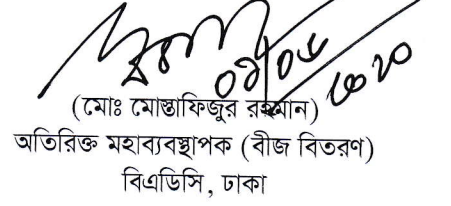 (মোঃ মোস্তাফিজুর রহমান)
অতিরিক্ত মহাব্যবস্থাপক (বীজ বিতরণ)
বিএডিসি, ঢাকা